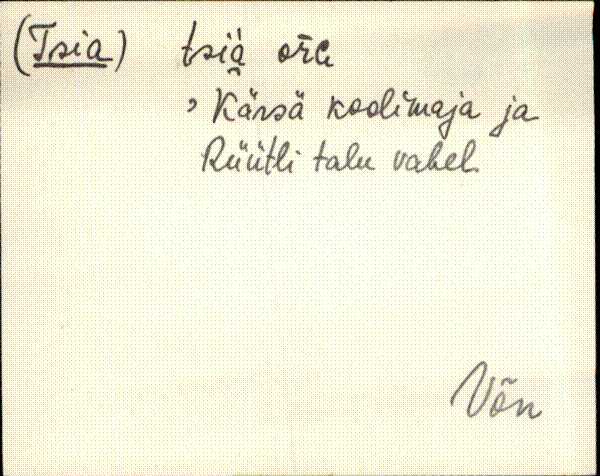 (Tsia) tsiä oŕŕe
, Kärsä koolimaja ja
Rüütli talu vahel.
Võn